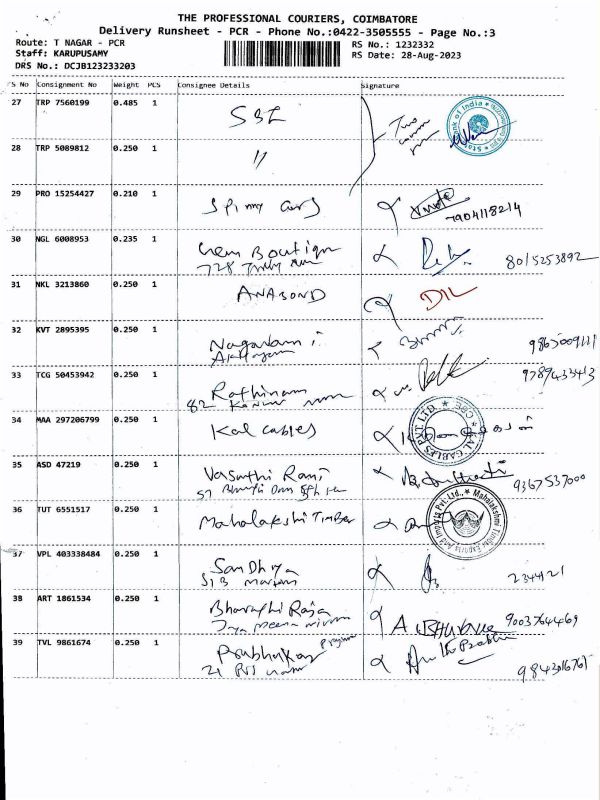 THE PROFESSIONAL COURIERS, COIMBATORE
Delivery Runsheet - PCR - Phone No.:0422-3505555 - Page No.:3
Route: T NAGAR - PCR
Staff: KARUPUSAMY
DRS No.: DCJB123233203
RS No.: 1232332
RS Date: 28-Aug-2023
S No Consignment No Weight PCS Consignee Details Signature
27 TRP 7560199 0.485 1 SBI Two
State Bank of India
28 TRP 5089812 0.250 1 "
29 PRO 15254427 0.210 1 Spinny Cars 7904118214
30 NGL 6008953 0.235 1 Chem Boutique 8015253892
728
31 NKL 3213860 0.250 1 ANABOND DIL
32 KVT 2895395 0.250 1 9865009111
33 TCG 50453942 0.250 1 Rathinam 9789433413
82
34 MAA 297206799 0.250 1 Kal cables
KAL CABLES PVT. LTD
35 ASD 47219 0.250 1 Vasuthi Rani 9367537000
57
36 TUT 6551517 0.250 1 Mahalakshi Timber
Mahalakshmi Timber Exports And Imports Pvt. Ltd.,
37 VPL 403338484 0.250 1 Sandhya 2344121
38 ART 1861534 0.250 1 Bharathi Raja 9003764469
39 TVL 9861674 0.250 1 Prabhukar
21